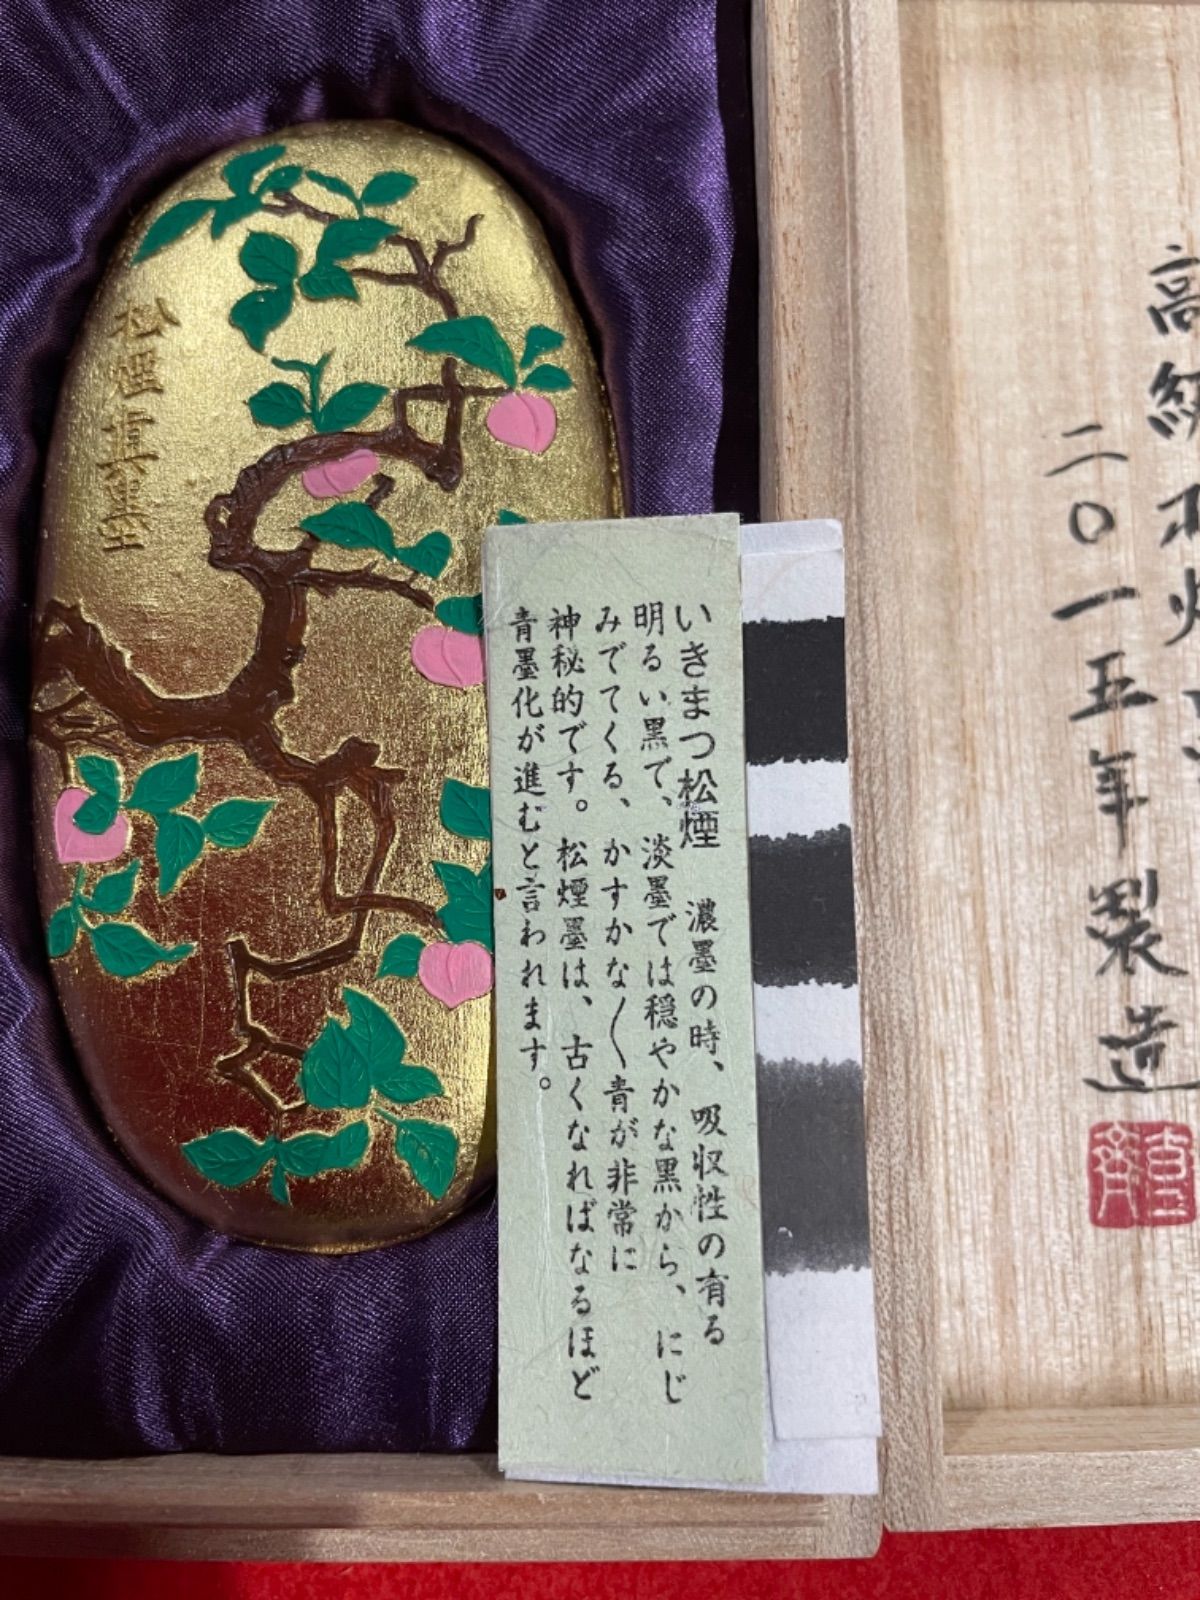 松煙真墨
いきまつ松煙 濃墨の時、吸収性の有る
明るい黒で、淡墨では穏やかな黒から、にじ
みでてくる、かすかな〳〵青が非常に
神秘的です。松煙墨は、古くなればなるほど
青墨化が進むと言われます。
高級松煙
二〇一五年製造